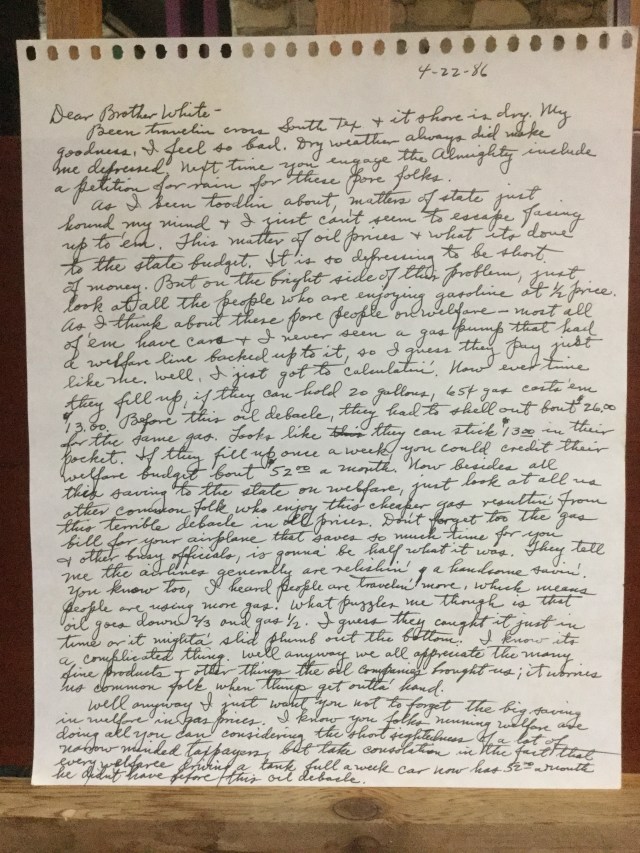 4-22-86
Dear Brother White-
Been travelin cross South Tex & it shore is dry. My
goodness, I feel so bad. Dry weather always did make
me depressed. Next time you engage the Almighty include
a petition for rain for these pore folks.
As I been toodlin about, matters of state just
hound my mind & I just can't seem to escape facing
up to em. This matter of oil prices & what its done
to the state budget. It is so depressing to be short
of money. But on the bright side of this problem, just
look at all the people who are enjoying gasoline at ½ price.
As I think about these pore people on welfare - most all
of 'em have cars & I never seen a gas pump that had
a welfare line backed up to it, so I guess they pay just
like me. Well, I just got to calculatin'. Now ever time
they fill up, if they can hold 20 gallons, 65¢ gas costs 'em
$13.00. Before this oil debacle, they had to shell out bout $26.00
for the same gas. Looks like they can stick $13.00 in their
pocket. If they fill up once a week, you could credit their
welfare budget bout $52.00 a month. Now besides all
this saving to the state on welfare, just look at all us
other common folk who enjoy this cheaper gas resultin' from
this terrible debacle in oil prices. Don't forget too the gas
bill for your airplane that saves so much time for you
& other busy officials, is gonna be half what it was. They tell
me the airlines generally are relishin' a handsome savin'.
You know too, I heard people are travelin' more, which means
people are using more gas. What puzzles me though is that
oil goes down 2/3 and gas ½. I guess they caught it just in
time or it mighta' slid plumb out the bottom. I know its
a complicated thing. Well anyway we all appreciate the many
fine products & other things the oil companies brought us; it worries
us common folk when things get outta hand.
Well anyway I just want you not to forget the big saving
in welfare in gas prices. I know you folks running welfare are
doing all you can considering the short sightedness of a lot of
narrow minded taxpayers, but take consolation in the fact that
every welfaree driving a tank full a week car now has $52.00 a month
he didn't have before this oil debacle.